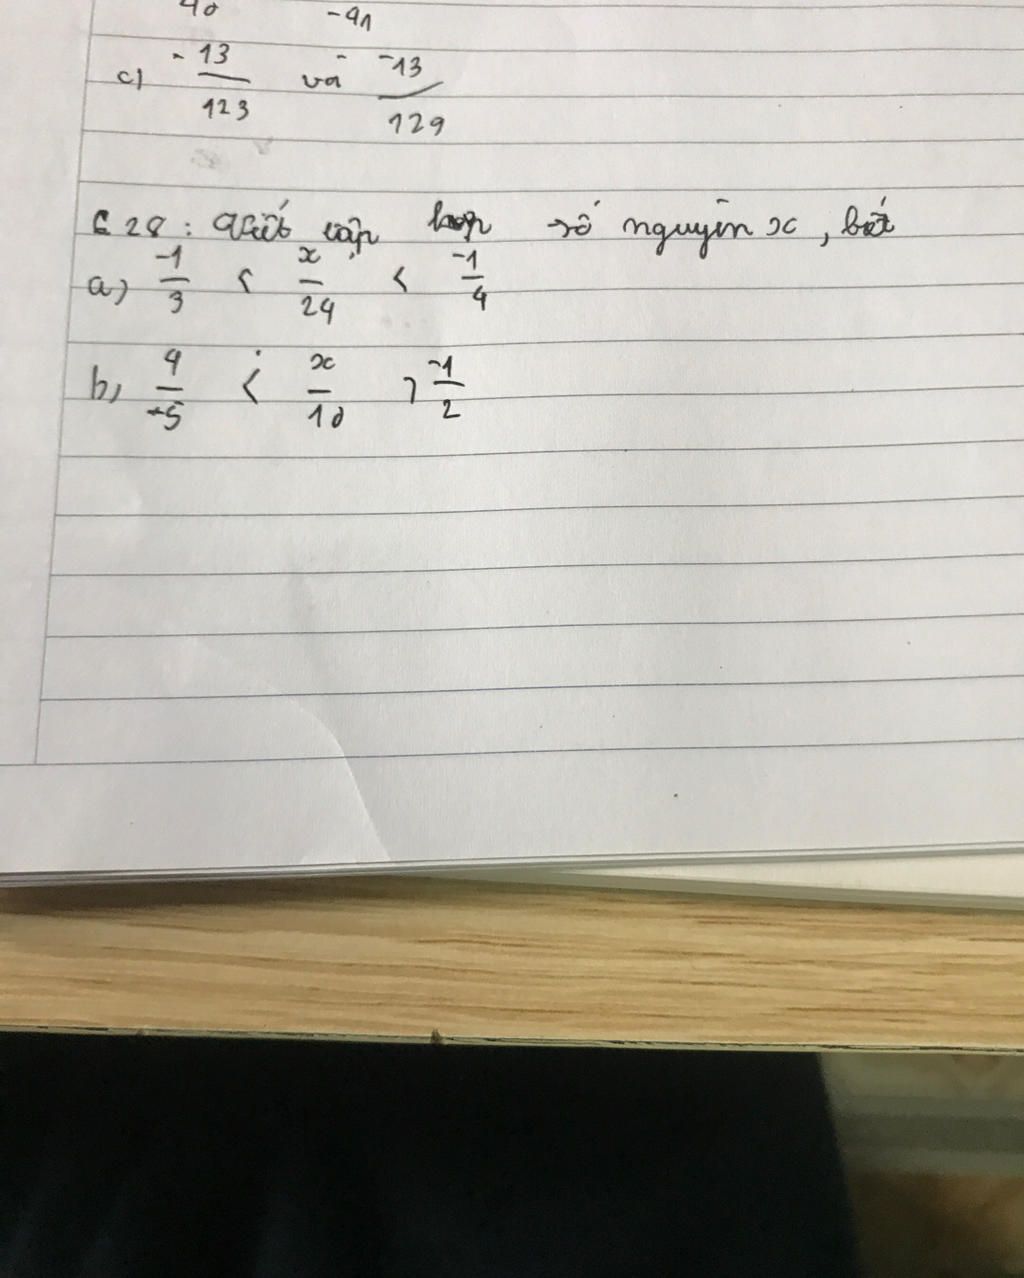 40 -41
c) -13/123 và -13/129
C28: Viết tập hợp số nguyên x, biết
a) -1/3 < x/24 < -1/4
b, 4/-5 < x/10 > -1/2